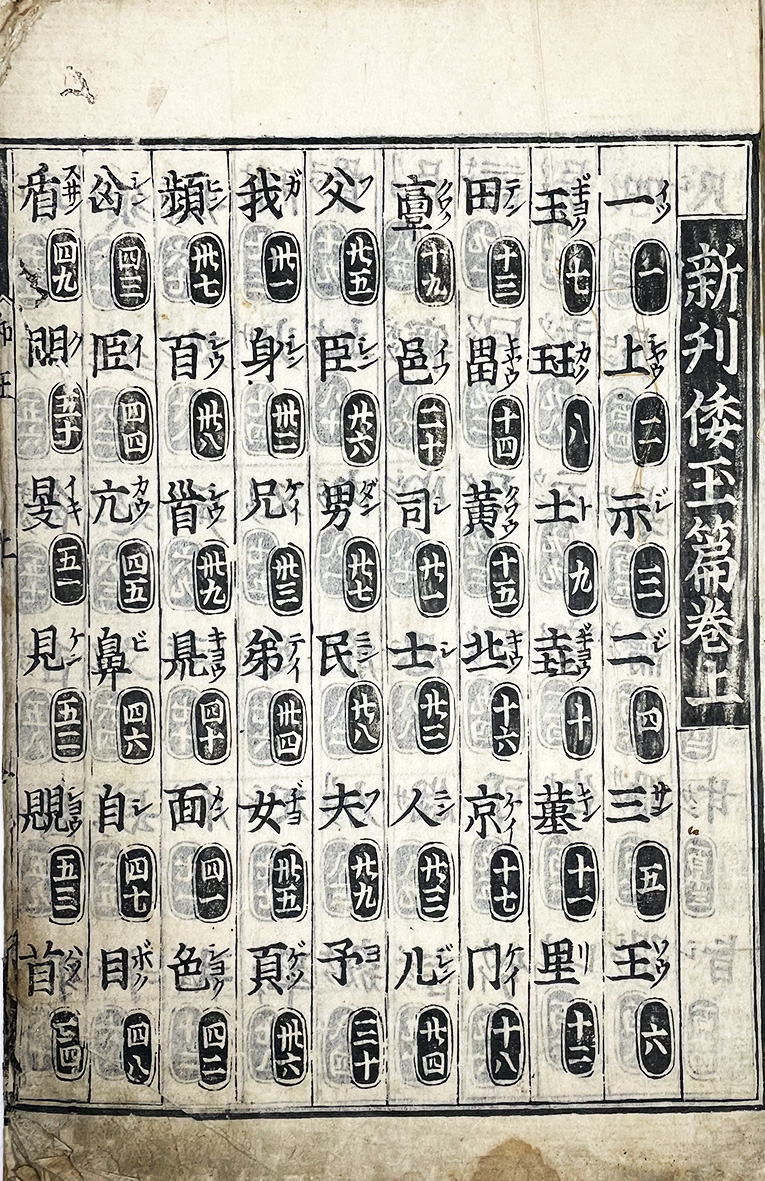 新刋倭玉篇卷上
一イツ 一 上シヤウ 二 示ジ 三 二ジ 四 三サン 五 王ワウ 六
玉ギヨク 七 玨カク 八 土ト 九 垚ギヨウ 十 堇キン 十一 里リ 十二
田テン 十三 畕キヤウ 十四 黃クワウ 十五 北キウ 十六 京ケイ 十七 冂ケイ 十八
𩫏クワク 十九 邑イフ 二十 司シ 廿一 士シ 廿二 人ニン 廿三 儿ジン 廿四
父フ 廿五 臣シン 廿六 男ダン 廿七 民ニン 廿八 夫フ 廿九 予ヨ 三十
我ガ 卅一 身シン 卅二 兄ケイ 卅三 弟テイ 卅四 女ヂヨ 卅五 頁ゲツ 卅六
頻ヒン 卅七 百シウ 卅八 首シウ 卅九 県キヨウ 四十 面メン 四一 色シヨク 四二
シン 四三 𦣞イ 四四 亢カウ 四五 鼻ビ 四六 自シ 四七 目ボク 四八
盾 四九 䀠ク 五十 イキ 五一 見ケン 五二 覞ヨウ 五三 五四